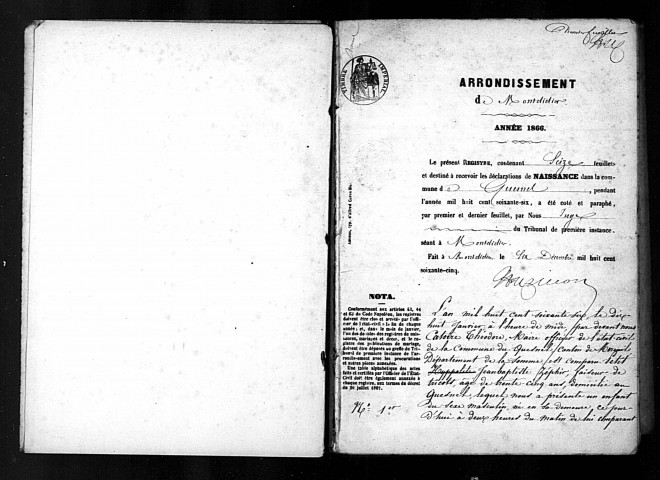 Premier feuillet
TIMBRE IMPERIAL
ARRONDISSEMENT
de Montdidier
ANNÉE 1866.
Le présent REGISTRE, contenant Seize feuillets
et destiné à recevoir les déclarations de NAISSANCE dans la com-
mune d Quesnel, pendant
l'année mil huit cent soixante-six, a été coté et paraphé,
par premier et dernier feuillet, par Nous Juge
du Tribunal de première instance
séant à Montdidier.
Fait à Montdidier le Six Décembre mil huit cent
soixante-cinq.
NOTA.
Conformément aux articles 43, 44
et 63 du Code Napoléon, les registres
doivent être clos et arrêtés par l'offi-
cier de l'état-civil à la fin de chaque
année; et, dans le mois de janvier,
l'un des doubles des registres de nais-
sances, mariages et décès, et le regis-
tre des publications de mariage,
doivent être déposés au greffe du Tri-
bunal de première instance de l'ar-
rondissement avec les procurations
et autres pièces annexées.
Une table alphabétique des actes
reçus et certifiés par l'Officier de l'État-
Civil doit être également annexée à
chaque registre, aux termes du décret
du 20 juillet 1807.
N° 1er
L'an mil huit cent soixante six le dix
huit Janvier, à l'heure de midi, par devant nous
Théodore, Maire officier de l'état civil
de la Commune du Quesnel, Canton de Moreuil
Département de la Somme, est comparu
Jeanbaptiste Zéphir, faiseur de
tricots, âgé de trente cinq ans, domicilié au
Quesnel, lequel nous a présenté un enfant
du sexe masculin, né en sa demeure, ce jour-
d'hui à deux heures du matin de lui comparant